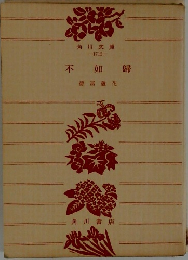 角川文庫
不如歸
德冨蘆花
角川書店